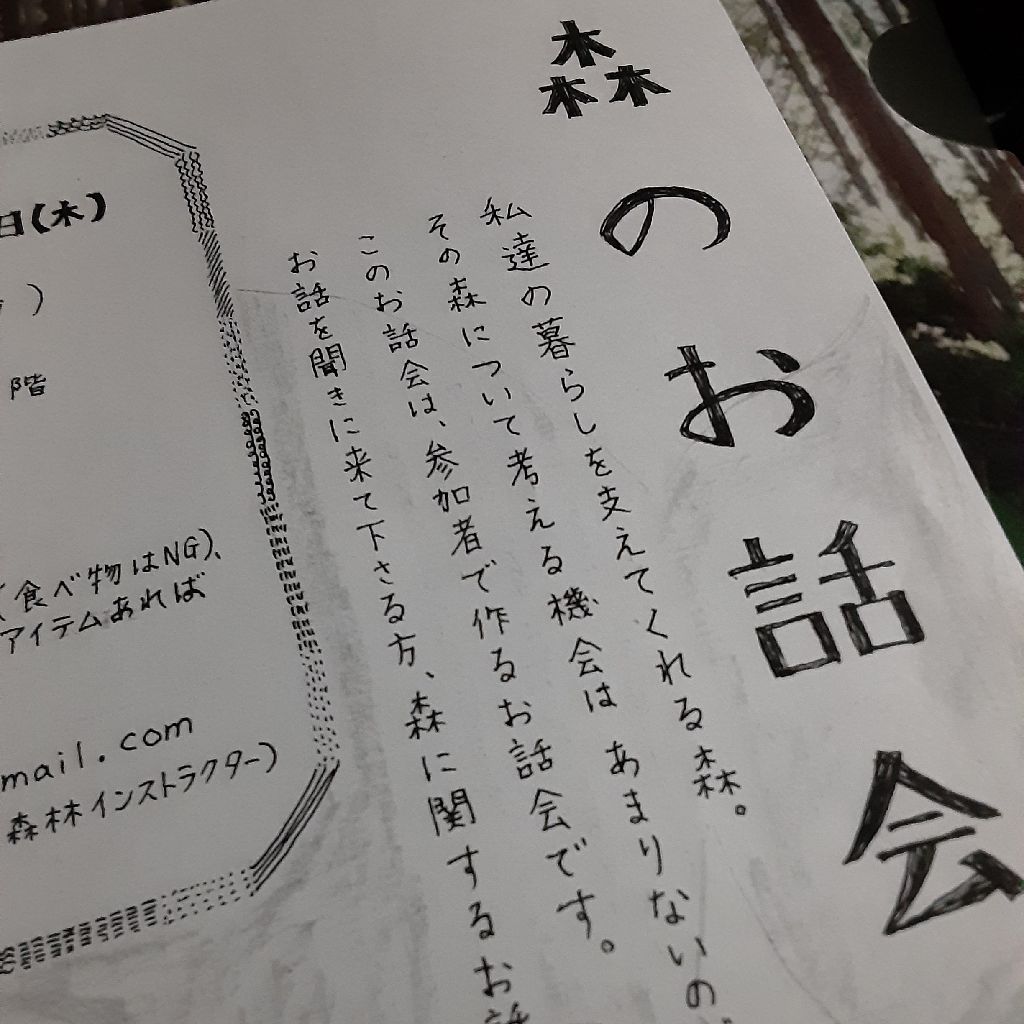 森のお話会
私達の暮らしを支えてくれる森。
その森について考える機会は あまりないの
このお話会は、参加者で作るお話会です。
お話を聞きに来て下さる方、森に関するお話
日(木)
)
階
食べ物はNG)、
アイテムあれば
mail.com
森林インストラクター)